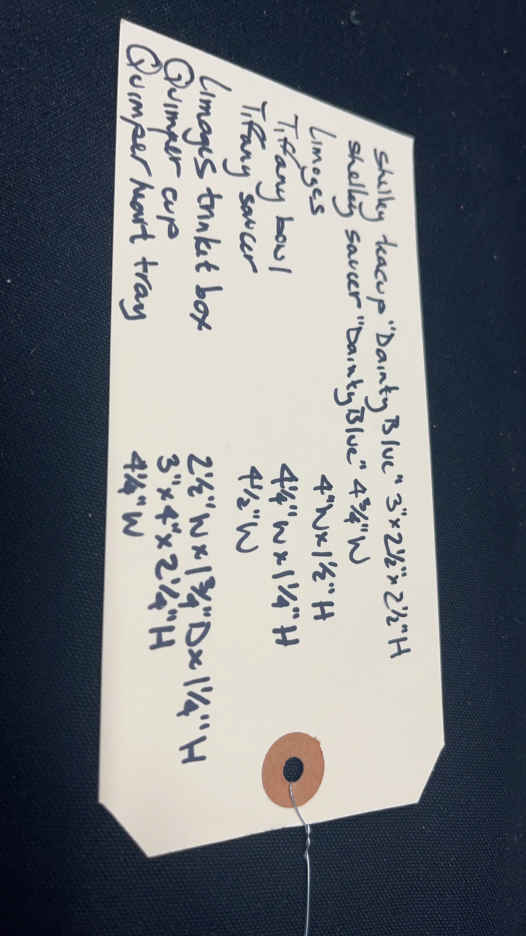 Shelky teacup "Dainty Blue" 3" x 2½" x 2½" H
Shelky saucer "Dainty Blue" 4¾" W
Limoges 4" W x 1½" H
Tiffany bowl 4¼" W x 1¼" H
Tiffany saucer 4½" W
Limoges trinket box 2½" W x 1¾" D x 1¼" H
Quimper cup 3" x 4" x 2¼" H
Quimper hart tray 4¼" W